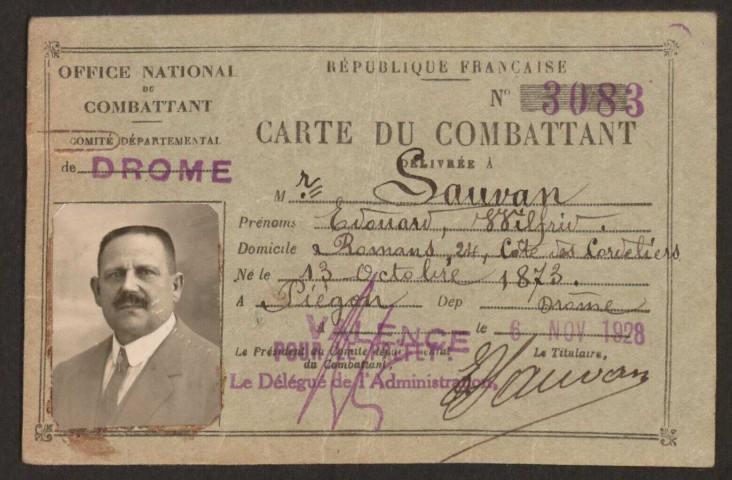 OFFICE NATIONAL
DU
COMBATTANT
COMITÉ DÉPARTEMENTAL
de DROME
RÉPUBLIQUE FRANÇAISE
N° 3083
CARTE DU COMBATTANT
DÉLIVRÉE À
M r Sauvan
Prénoms Edouard, Wilfrid.
Domicile à Romans, 24, Côte des Cordeliers
Né le 13 Octobre 1873.
A Piégon Dép Drome
A VALENCE le 6 NOV 1928
POUR LE PRÉFET:
Le Président du Comité départemental
du Combattant,
Le Titulaire,
Le Délégué de l'Administration,
E Sauvan